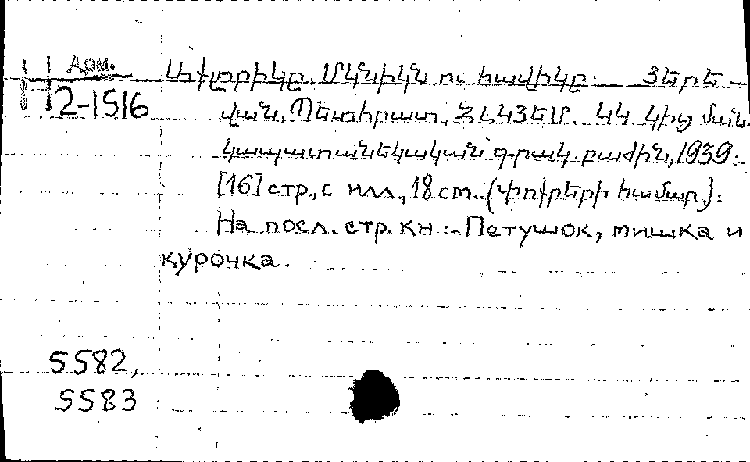 Арм.
Աքլորիկը, Մկնիկն ու հավիկը. Յերե-
2-1516
վան, Պետհրատ, ՀԼԿՅԵՄ. ԿԿ կից ման.
կապատանեկական գրակ. բաժին, 1939.
[16] стр, с илл., 18 см. (փոքրերի համար):
На посл. стр. кн.: Петушок, мишка и
курочка.
5582,
5583